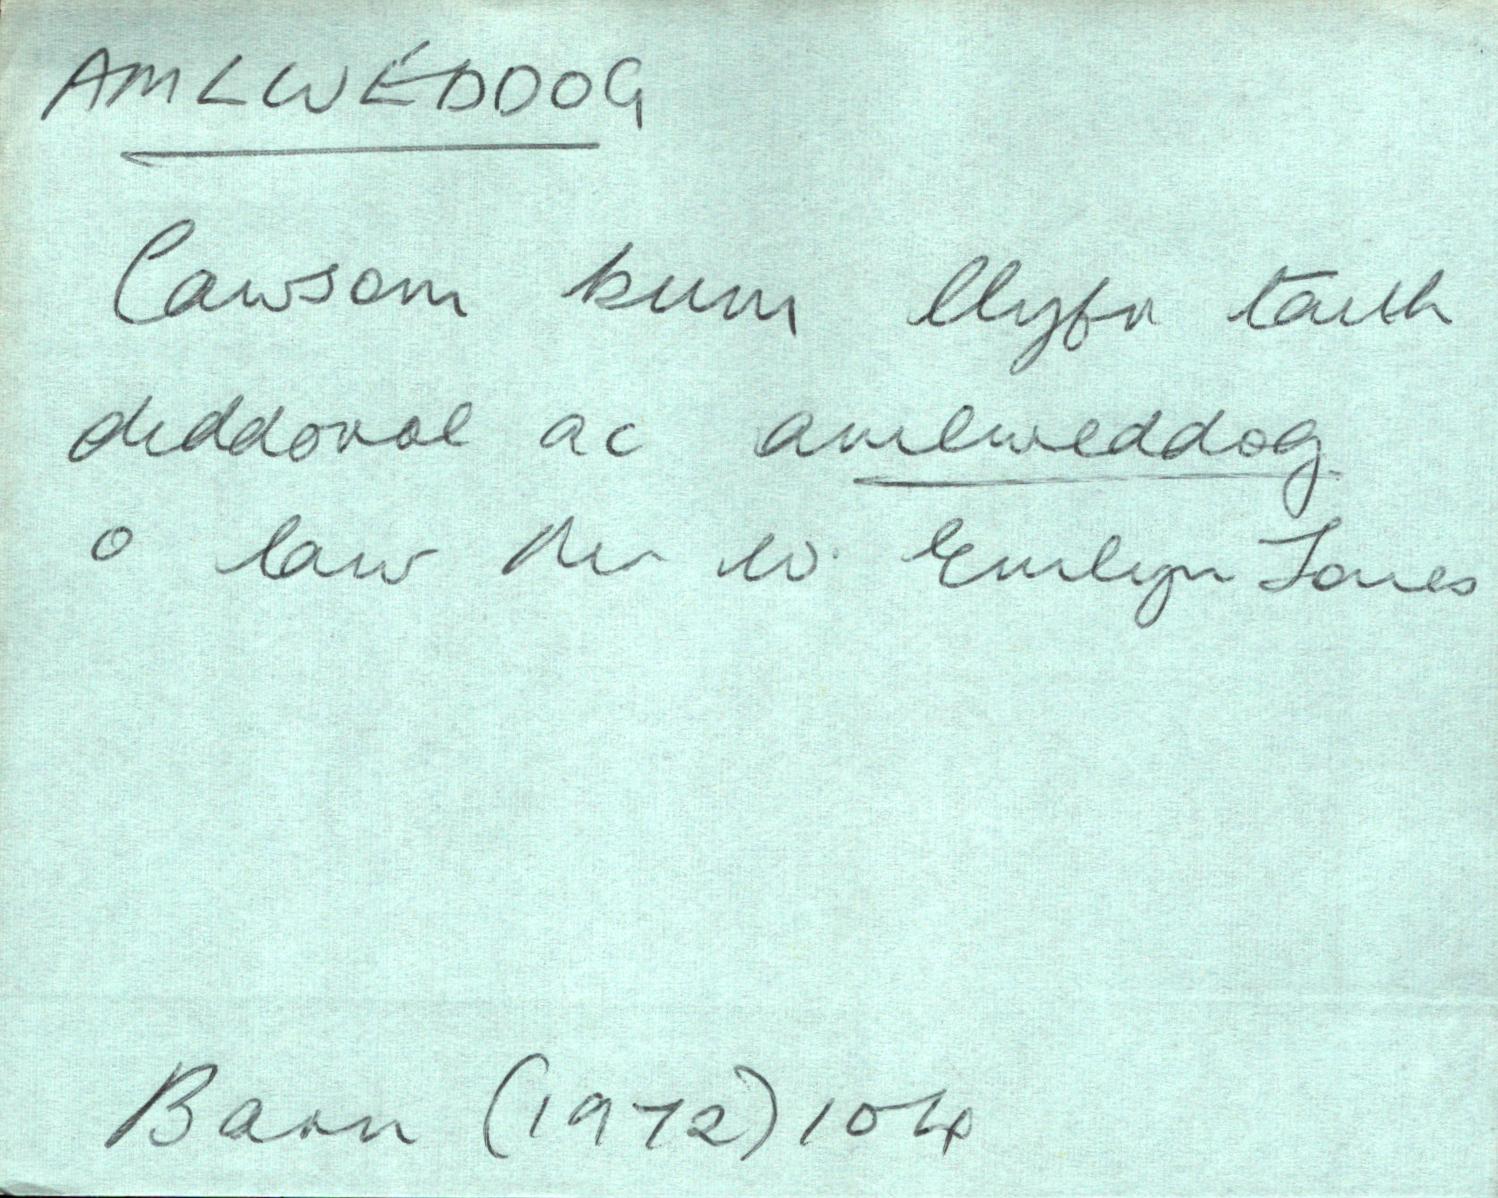 AMLWEDDOG
Cawsom bum llyfr taith
diddorol ac amlweddog
o law Mr W. Emlyn Jones
Barn (1972) 104